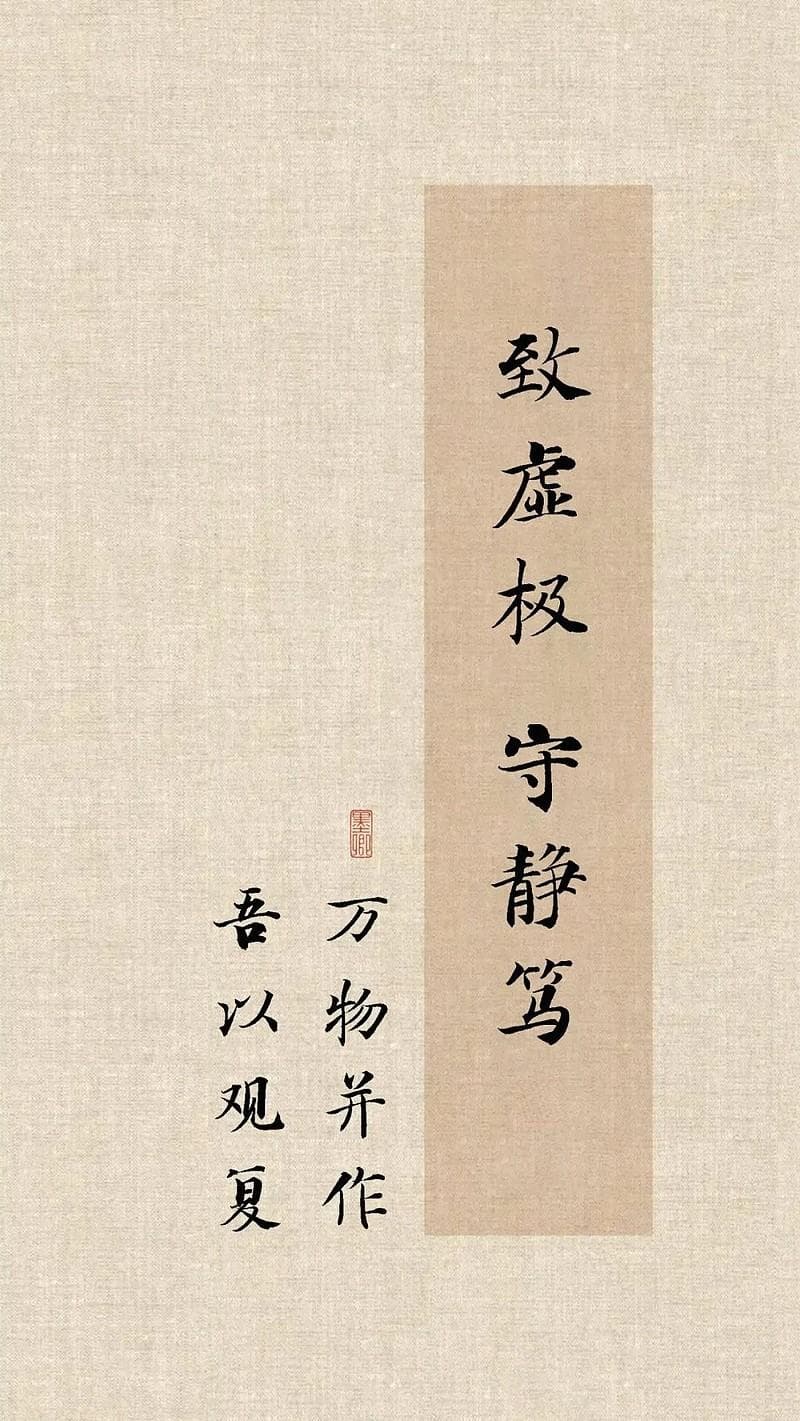 致虚极 守静笃
万物并作
吾以观复
墨卿